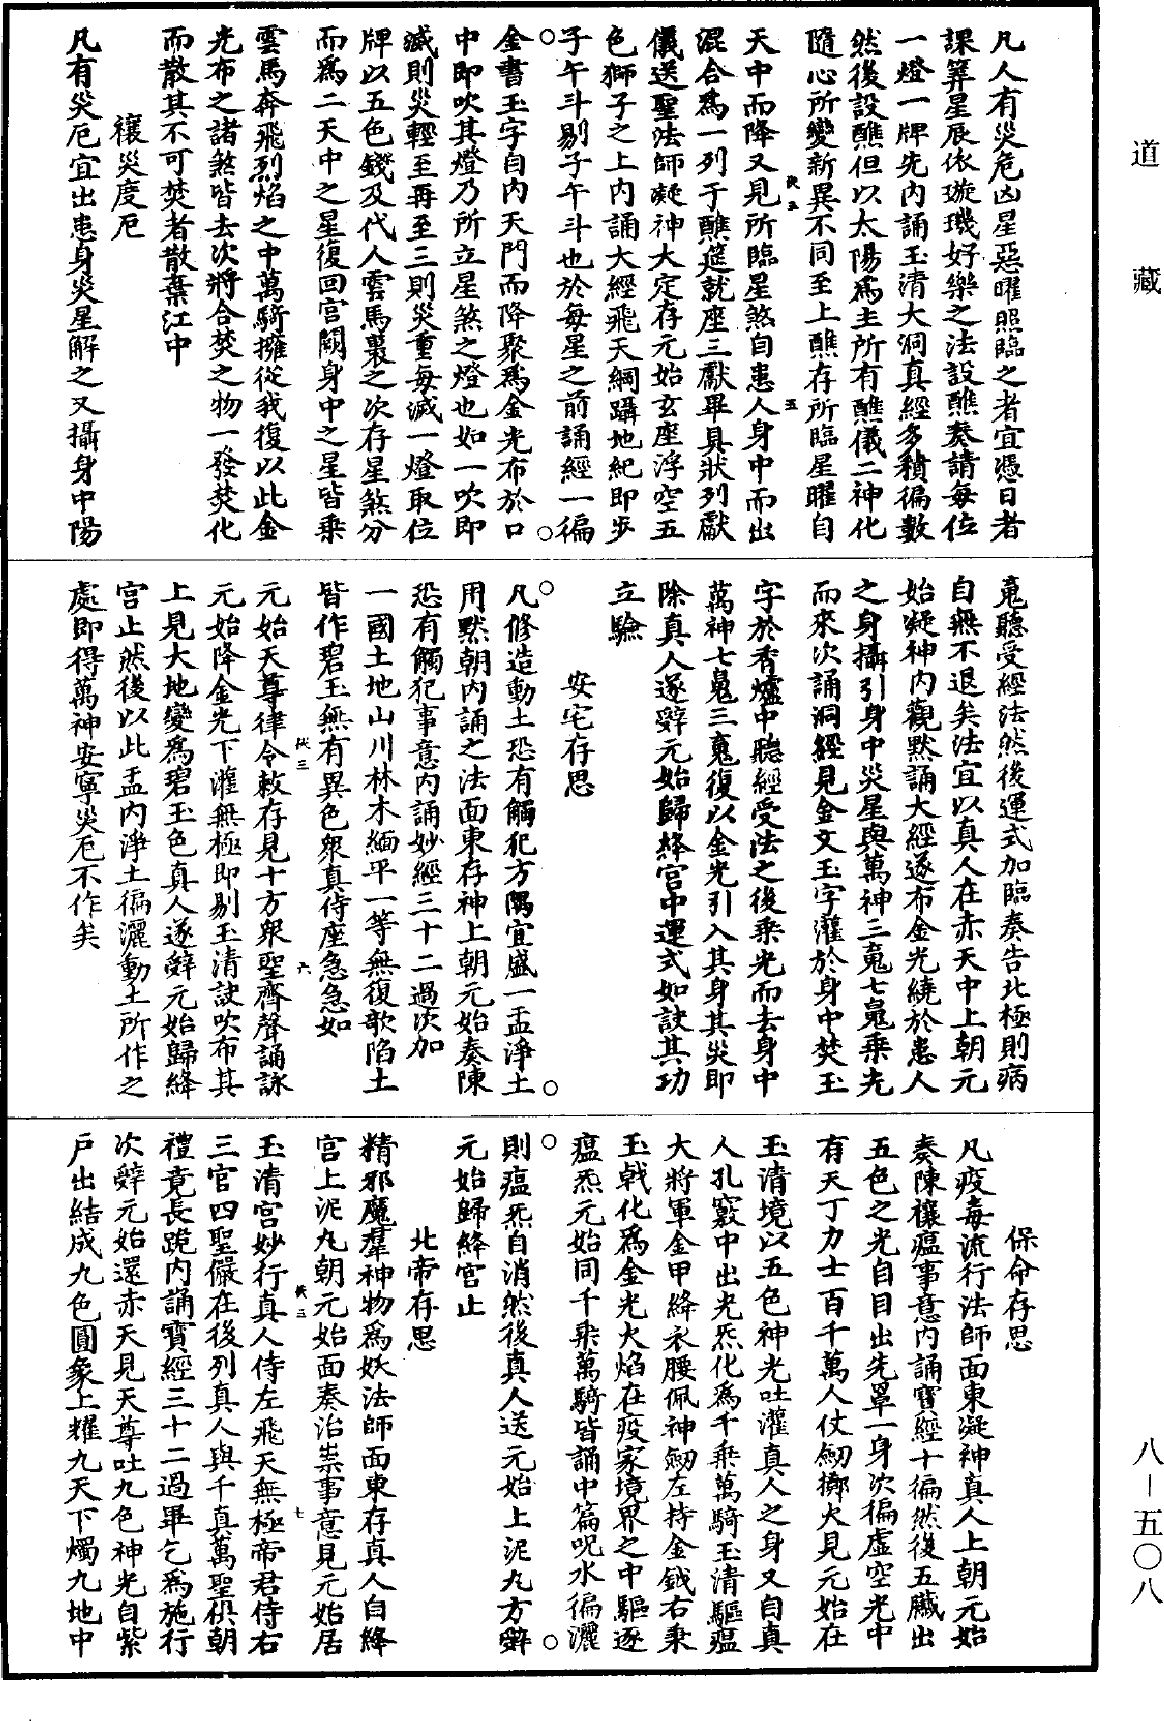 道藏
八—五〇八
凡人有災危凶星惡曜照臨之者宜憑日者
課筭星辰依璇璣好樂之法設醮奏請每位
一燈一牌先内誦玉清大洞真經多積徧數
然後設醮但以太陽爲主所有醮儀二神化
隨心所變新異不同至上醮存所臨星曜自
天中而降又見所臨星煞自患人身中而出
混合爲一列于醮筵就座三獻畢具狀列獻
儀送聖法師凝神大定存元始玄座浮空五
色獅子之上内誦大經飛天綱躡地紀即步
子午斗剔子午斗也於每星之前誦經一徧
金書玉字自内天門而降聚爲金光布於口
中即吹其燈乃所立星煞之燈也如一吹即
滅則災輕至再至三則災重每滅一燈取位
牌以五色錢及代人雲馬裹之次存星煞分
而爲二天中之星復回宫闕身中之星皆乗
雲馬奔飛烈焰之中萬騎擁從我復以此金
光布之諸煞皆去次將合焚之物一發焚化
而散其不可焚者散棄江中
禳災度厄
凡有災厄宜出患身災星解之又攝身中陽
䰟聽受經法然後運式加臨奏告北極則病
自無不退矣法宜以真人在赤天中上朝元
始凝神内觀默誦大經遂布金光繞於患人
之身攝引身中災星與萬神三䰟七魄乗光
而來次誦洞經見金文玉字灌於身中焚玉
字於香爐中聽經受法之後乗光而去身中
萬神七魄三䰟復以金光引入其身其災即
除真人遂辭元始歸絳宫中運式如訣其功
立驗
安宅存思
凡修造動土恐有觸犯方隅宜盛一盂淨土
用默朝内誦之法面東存神上朝元始奏陳
恐有觸犯事意内誦妙經三十二過次加
一國土地山川林木緬平一等無復欹陷土
皆作碧玉無有異色衆真侍座急急如
元始天尊律令敕存見十方衆聖齊聲誦詠
元始降金光下灌無極即剔玉清訣吹布其
上見大地變爲碧玉色真人遂辭元始歸絳
宫止然後以此盂内淨土徧灑動土所作之
處即得萬神安寧災厄不作矣
保命存思
凡疫毒流行法師面東凝神真人上朝元始
奏陳禳瘟事意内誦寶經十徧然後五臟出
五色之光自目出先罩一身次徧虚空光中
有天丁力士百千萬人仗劒擲火見元始在
玉清境以五色神光吐灌真人之身又自真
人孔竅中出光炁化爲千乗萬騎玉清驅瘟
大將軍金甲絳衣腰佩神劒左持金鉞右秉
玉戟化爲金光火焰在疫家境界之中驅逐
瘟炁元始同千乗萬騎皆誦中篇呪水徧灑
則瘟炁自消然後真人送元始上泥丸方辭
元始歸絳宫止
北帝存思
精邪魔羣神物爲妖法師面東存真人自絳
宫上泥丸朝元始面奏治祟事意見元始居
玉清宫妙行真人侍左飛天無極帝君侍右
三官四聖儼在後列真人與千真萬聖俱朝
禮竟長跪内誦寶經三十二過畢乞爲施行
次辭元始還赤天見天尊吐九色神光自紫
戶出結成九色圓象上耀九天下燭九地中